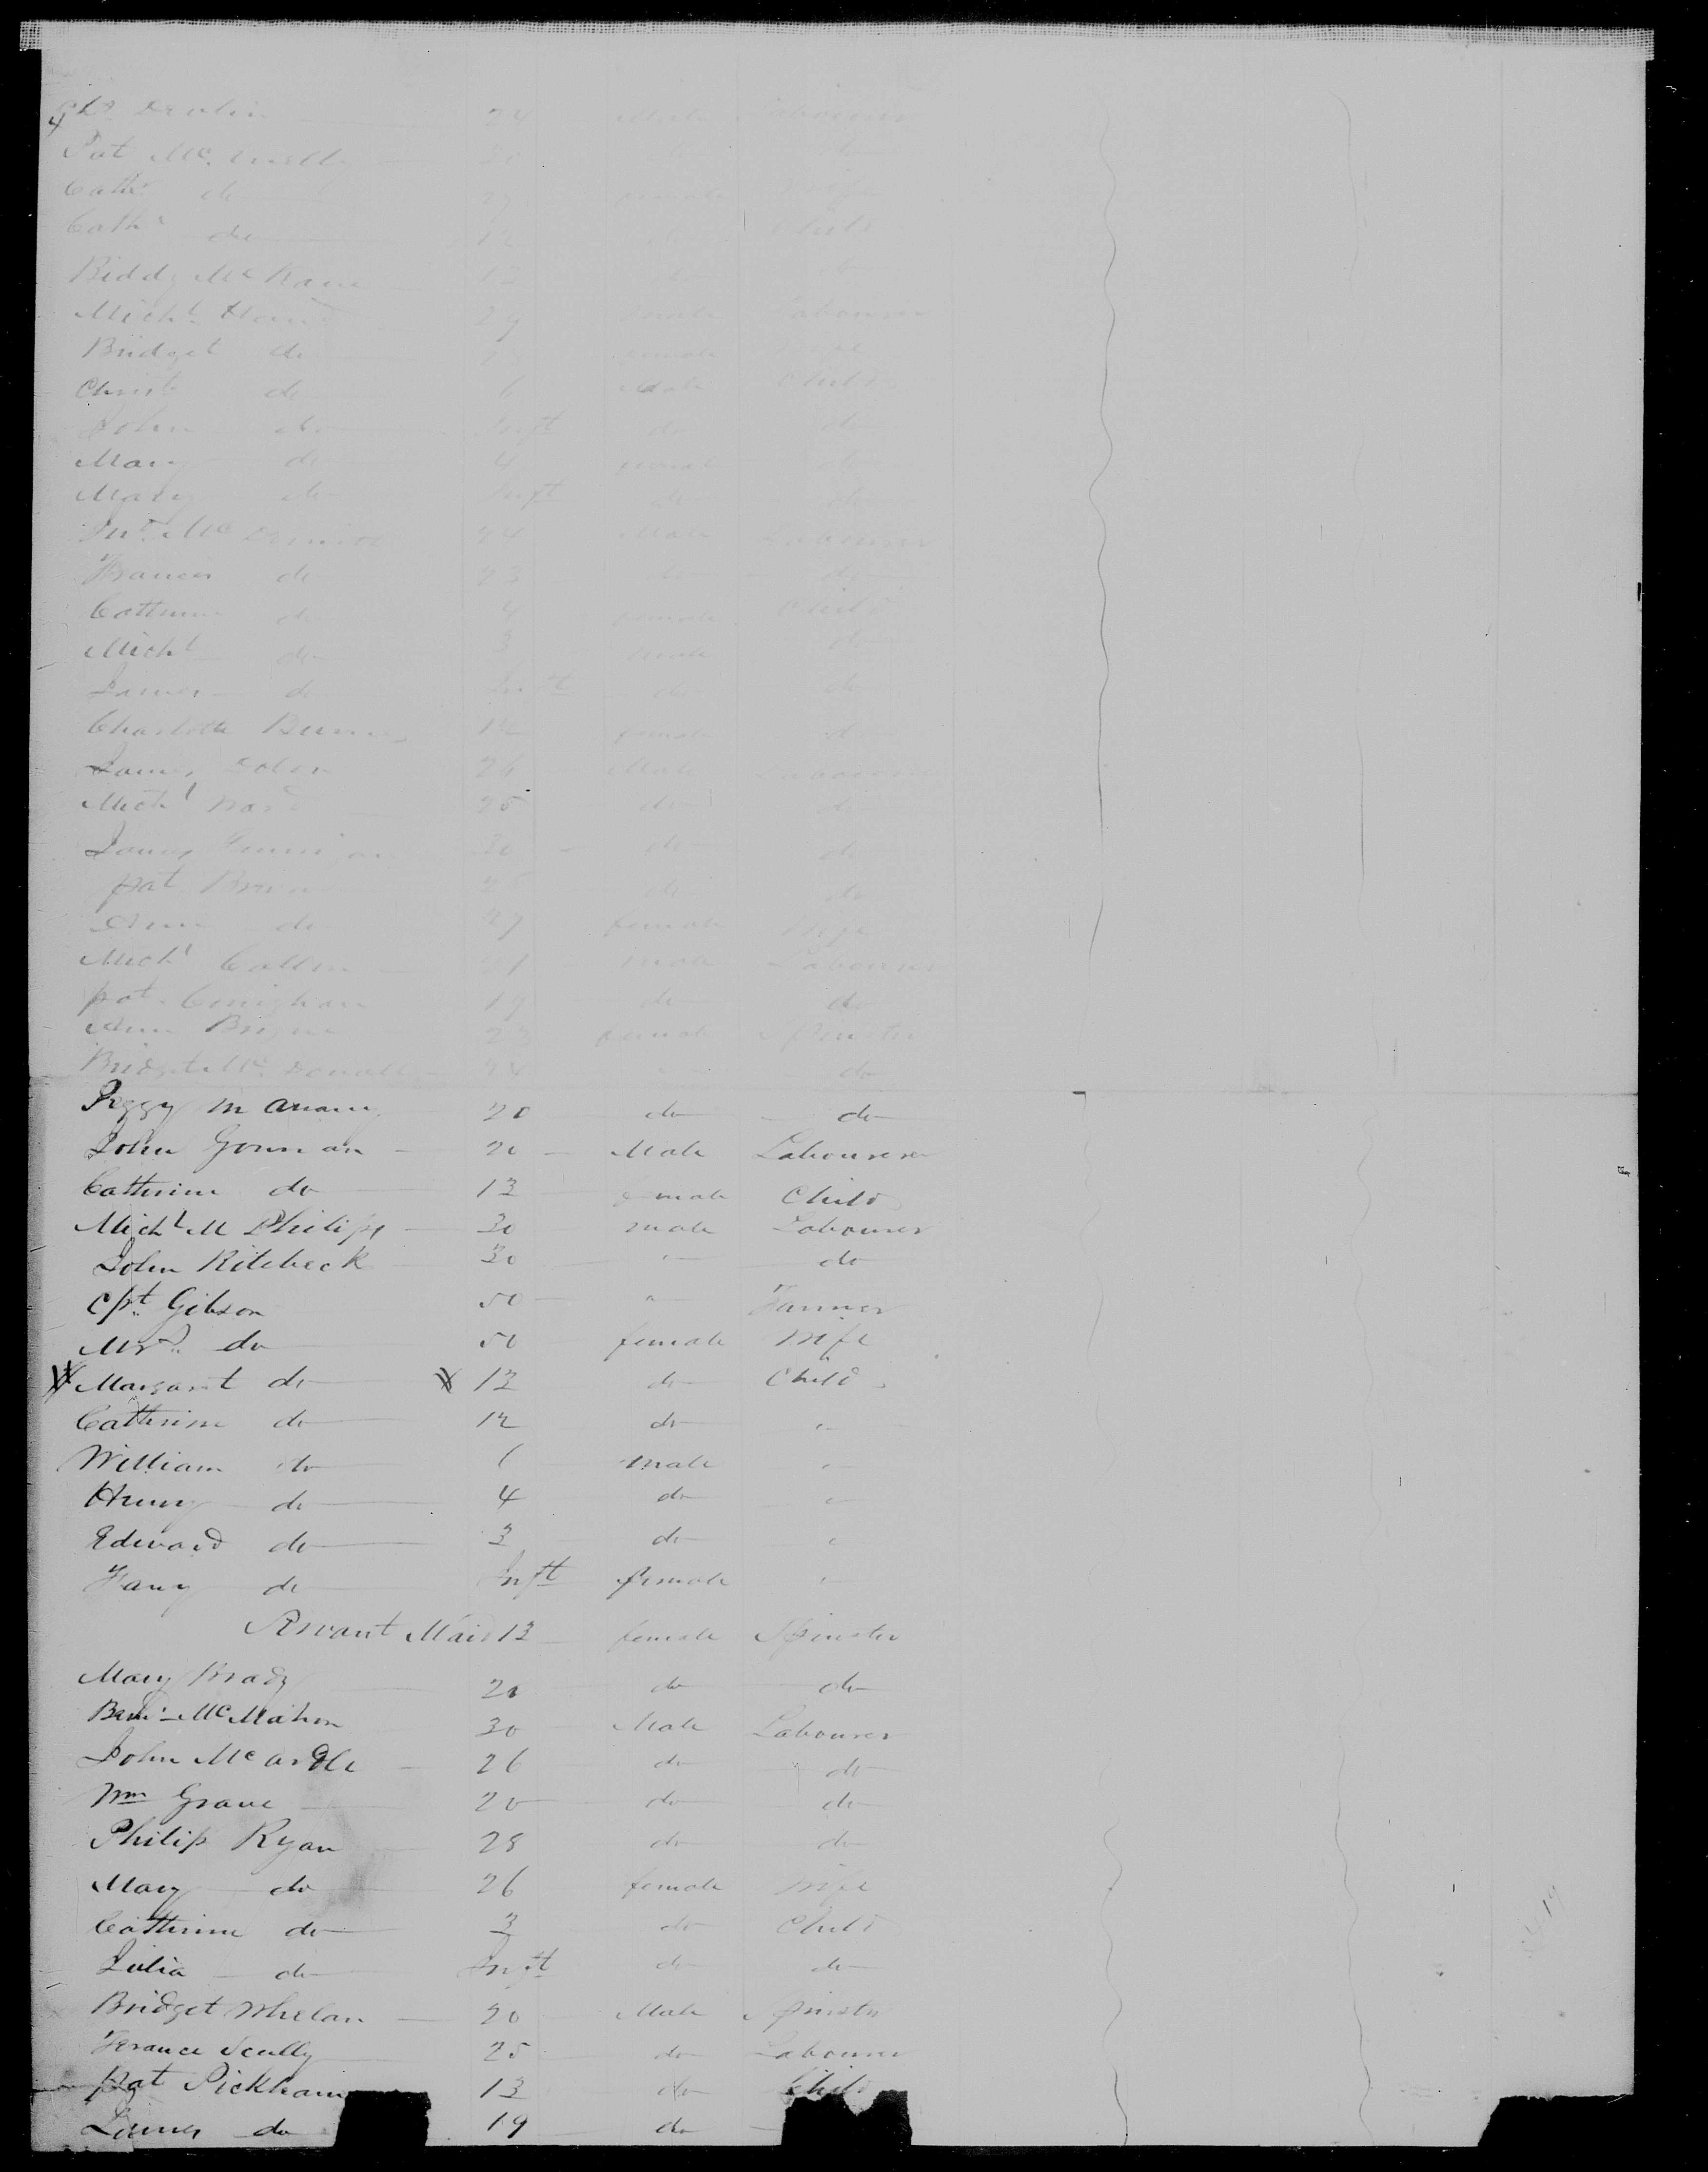 24 Male Labourer
Pat Mc. 20
Cath do 27 female Wife
Cath do 12 Child
Biddy Mc 12 do
Michl. 29 male Labourer
Bridget do female Wife
Christ do 6 Male Child
John do Inft do do
Mary do 4 female do
Mary do Inft do do
Mc Dermott 24 Male Labourer
Frances do 23 do do
Catherine do 4 female Child
Michl do 3 male do
James do Inft do do
Charlotte Burns 12 female do
James Dolon 26 Male Labourer
Michl Ward 25 do do
James Finnigan 30 do do
pat Brown 25 do do
Ann do 27 female Wife
Michl Callon 21 male Labourer
pat. Conighan 19 do do
Ann 23 female Spinster
Bridget Mc. Donall 24 " do
Peggy 20 do do
John Gorman 20 Male Labourer
Catherine do 13 female Child
Michl M Philips 30 male Labourer
John Ritebeck 30 " do
Cpt. Gibson 50 " Farmer
Mrs. do 50 female Wife
Margaret do 13 do Child
Catherine do 12 do "
William do 6 male "
Henry do 4 do "
Edward do 3 do "
Fany do Inft female "
Servant Maid 13 female Spinster
Mary Brady 20 do do
McMahon 30 Male Labourer
John Mcardle 26 do do
Wm Grave 20 do do
Philip Ryan 28 do do
Mary do 26 female Wife
Catherine do 3 do Child
Julia do Inft do do
Bridget Whelan 20 Male Spinstr
Terance Scully 25 do Labourer
pat Pickham 13 do Child
James do 19 do